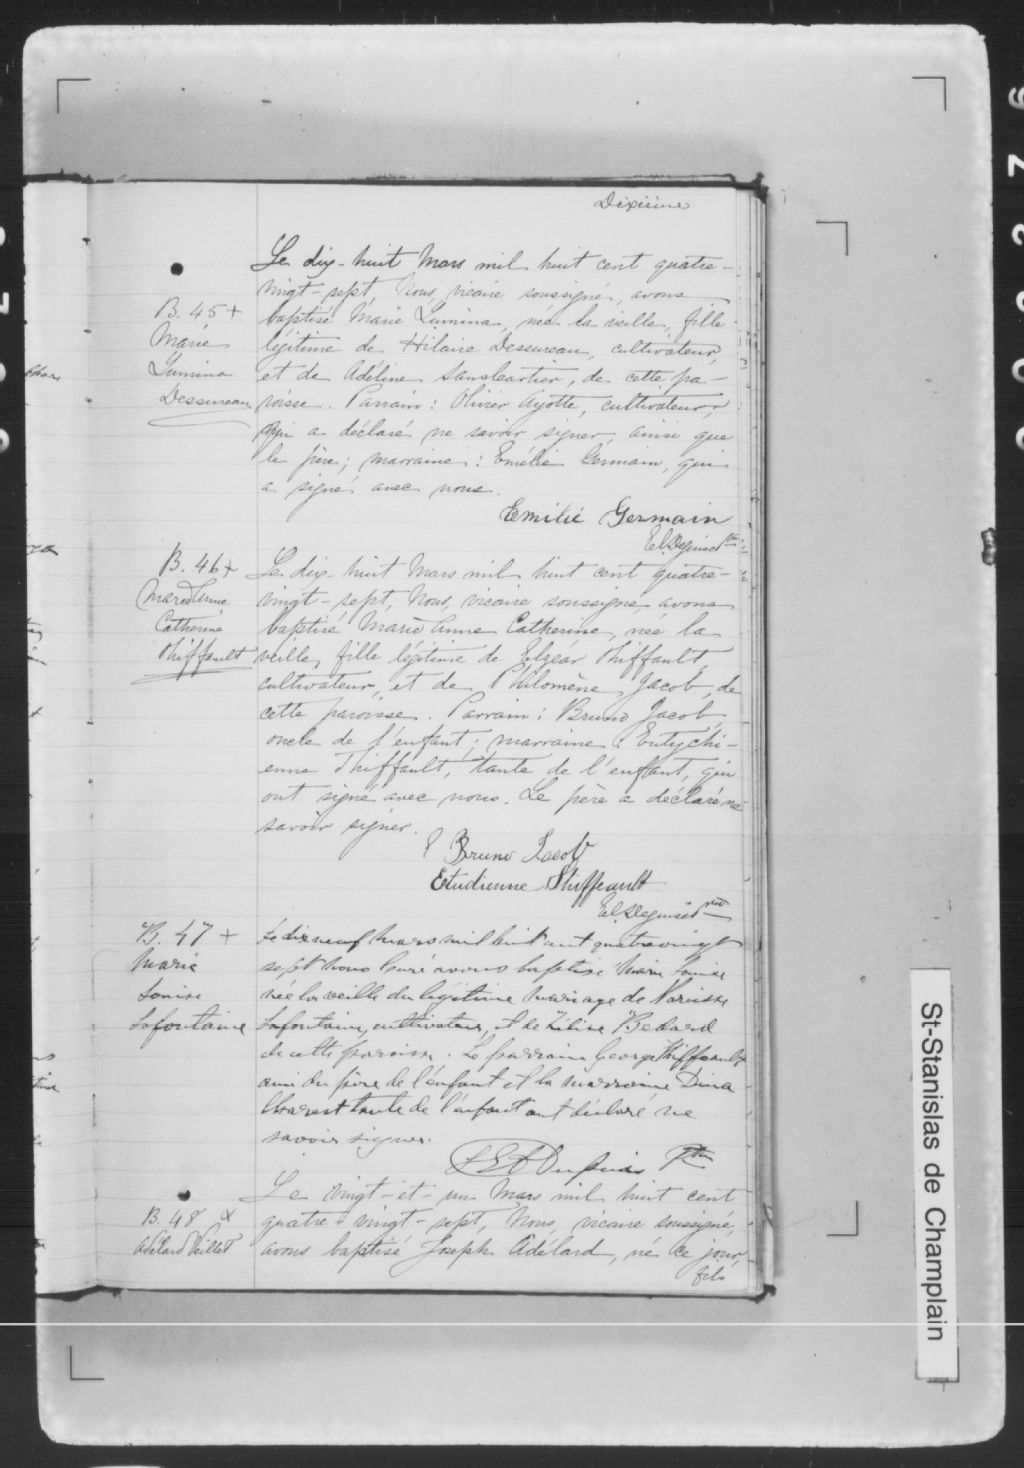 Dixième
Le dix-huit Mars mil huit cent quatre-
vingt-sept, Nous, vicaire soussigné, avons
B. 45 +
baptisé Marie Lumina, née la veille, fille
Marie
légitime de Hilaire Dessureau, cultivateur,
Lumina
et de Adéline Lanscartier, de cette pa-
Dessureau
roisse. Parrain: Olivier Ayotte, cultivateur,
qui a déclaré ne savoir signer, ainsi que
le père; marraine: Emélie Germain, qui
a signé avec nous.
Emilie Germain
B. 46 +
Le dix-huit Mars mil huit cent quatre-
Marie Anne
vingt-sept, Nous, vicaire soussigné, avons
Catherine
baptisé Marie Anne Catherine, née la
Thiffault
veille, fille légitime de Elzéar Thiffault,
cultivateur, et de Philomène Jacob, de
cette paroisse. Parrain: Bruno Jacob,
oncle de l'enfant; marraine: Eutychi-
enne Thiffault, tante de l'enfant, qui
ont signé avec nous. Le père a déclaré ne
savoir signer.
Bruno Jacob
Etudienne Thiffeault
B. 47 +
Le dix neuf mars mil huit cent quatre vingt
Marie
sept Nous Curé avons baptisé Marie Louise
Louise
née la veille du légitime mariage de Narcisse
Lafontaine
Lafontaine, cultivateur, et de Zéline Bedard
de cette paroisse. Le parrain George Thiffeault
ami du père de l'enfant et la marraine Dina
tante de l'enfant ont déclaré ne
savoir signer.
Ptre
Le vingt-et-un Mars mil huit cent
B. 48 x
quatre-vingt-sept, Nous, vicaire soussigné,
Adélard Veillet
avons baptisé Joseph Adélard, né ce jour,
fils
St-Stanislas de Champlain